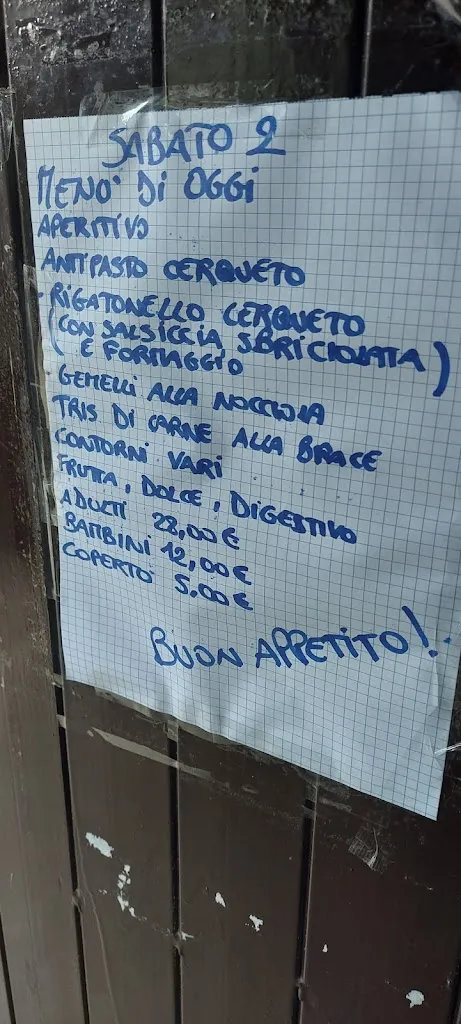 SABATO 2
MENO' DI OGGI
APERITIVO
ANTIPASTO CERQUETO
- RIGATONELLO CERQUETO
(CON SALSICCIA SBRICIOLATA)
( E FORMAGGIO
- GEMELLI ALLA NOCCIOLA
TRIS DI CARNE ALLA BRACE
CONTORNI VARI
FRUTTA, DOLCE, DIGESTIVO
ADULTI 28,00 €
BAMBINI 12,00 €
COPERTO 5,00 €
BUON APPETITO!